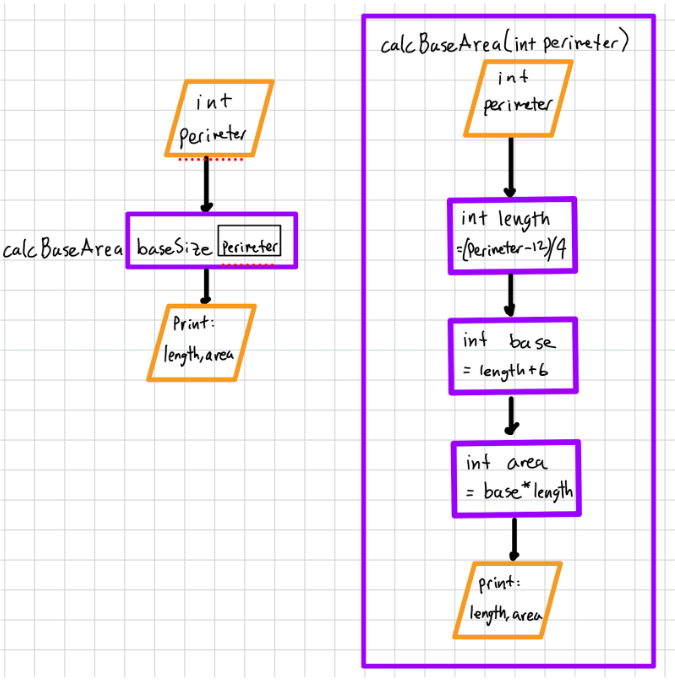 int
perimeter
calcBaseArea
baseSize perimeter
Print:
length, area
calcBaseArea(int perimeter)
int
perimeter
int length
=(Perimeter-12)/4
int base
= length+6
int area
= base*length
print:
length, area